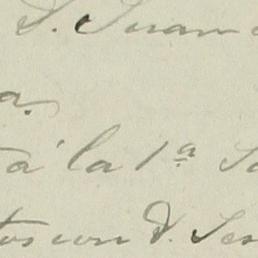 S. Juan
a.
tá la 1ª Sa
tos con D. Ses